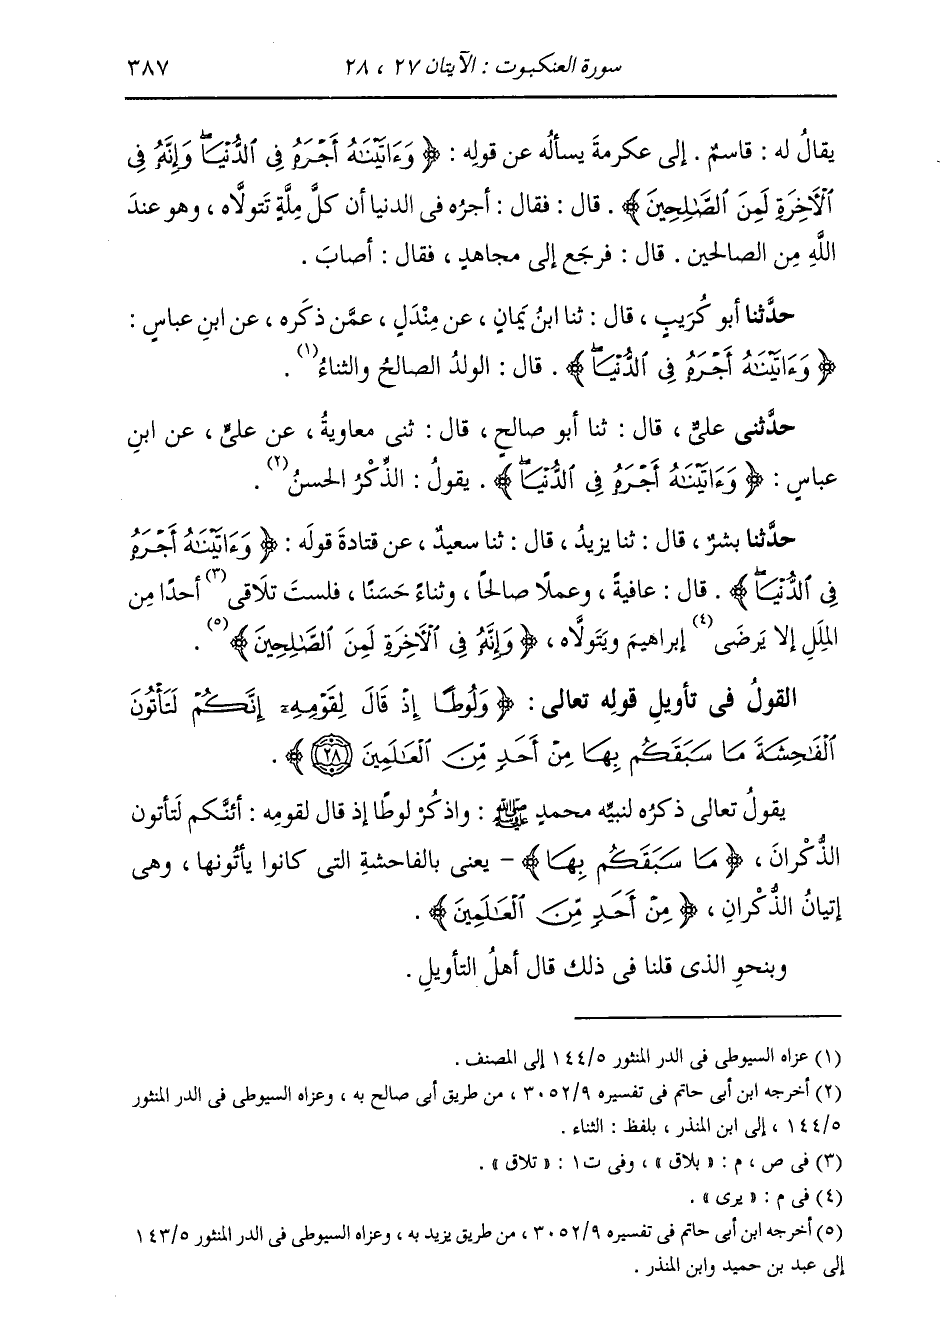 سورة العنكبوت : الآيتان ٢٧ ، ٢٨ ٣٨٧
يقالُ له : قاسمٌ . إلى عكرمةَ يسألُه عن قولِه : ﴿ وَءَاتَيْنَٰهُ أَجْرَهُۥ فِى ٱلدُّنْيَاۖ وَإِنَّهُۥ فِى
ٱلْأَخِرَةِ لَمِنَ ٱلصَّٰلِحِينَ ﴾ . قال : فقال : أجرُه فى الدنيا أن كلَّ مِلَّةٍ تَتولَّاه ، وهو عندَ
اللَّهِ مِن الصالحين . قال : فرجَع إلى مجاهدٍ ، فقال : أصابَ .
حدَّثنا أبو كُرَيبٍ ، قال : ثنا ابنُ يَمانٍ ، عن مِنْدَلٍ ، عمَّن ذكَره ، عن ابنِ عباسٍ :
﴿ وَءَاتَيْنَٰهُ أَجْرَهُۥ فِى ٱلدُّنْيَاۖ ﴾ . قال : الولدُ الصالحُ والثناءُ(١) .
حدَّثنى علىٌّ ، قال : ثنا أبو صالحٍ ، قال : ثنى معاويةُ ، عن علىٍّ ، عن ابنِ
عباسٍ : ﴿ وَءَاتَيْنَٰهُ أَجْرَهُۥ فِى ٱلدُّنْيَاۖ ﴾ . يقولُ : الذِّكْرُ الحسنُ(٢) .
حدَّثنا بشرٌ ، قال : ثنا يزيدُ ، قال : ثنا سعيدٌ ، عن قتادةَ قولَه : ﴿ وَءَاتَيْنَٰهُ أَجْرَهُۥ
فِى ٱلدُّنْيَاۖ ﴾ . قال : عافيةً ، وعملًا صالحًا ، وثناءً حَسَنًا ، فلستَ تلَاقى(٣) أحدًا مِن
المِلَلِ إلا يَرضَى(٤) إبراهيمَ ويَتَولَّاه ، ﴿ وَإِنَّهُۥ فِى ٱلْأَخِرَةِ لَمِنَ ٱلصَّٰلِحِينَ ﴾(٥) .
القولُ فى تأويلِ قولِه تعالى : ﴿ وَلُوطًا إِذْ قَالَ لِقَوْمِهِۦٓ إِنَّكُمْ لَتَأْتُونَ
ٱلْفَٰحِشَةَ مَا سَبَقَكُم بِهَا مِنْ أَحَدٍ مِّنَ ٱلْعَٰلَمِينَ (٢٨) ﴾ .
يقولُ تعالى ذكرُه لنبيِّه محمدٍ ﷺ : واذكُرْ لوطًا إذ قال لقومِه : أئنَّكم لَتأتون
الذُّكْرانَ ، ﴿ مَا سَبَقَكُم بِهَا ﴾ - يعنى بالفاحشةِ التى كانوا يأتُونها ، وهى
إتيانُ الذُّكْرانِ ، ﴿ مِنْ أَحَدٍ مِّنَ ٱلْعَٰلَمِينَ ﴾ .
وبنحوِ الذى قلنا فى ذلك قال أهلُ التأويلِ .
(١) عزاه السيوطى فى الدر المنثور ١٤٤/٥ إلى المصنف .
(٢) أخرجه ابن أبى حاتم فى تفسيره ٣٠٥٢/٩ ، من طريق أبى صالح به ، وعزاه السيوطى فى الدر المنثور
١٤٤/٥ ، إلى ابن المنذر ، بلفظ : الثناء .
(٣) فى ص ، م : « بلاق » ، وفى ت١ : « تلاق » .
(٤) فى م : « يرى » .
(٥) أخرجه ابن أبى حاتم فى تفسيره ٣٠٥٢/٩ ، من طريق يزيد به ، وعزاه السيوطى فى الدر المنثور ١٤٣/٥
إلى عبد بن حميد وابن المنذر .